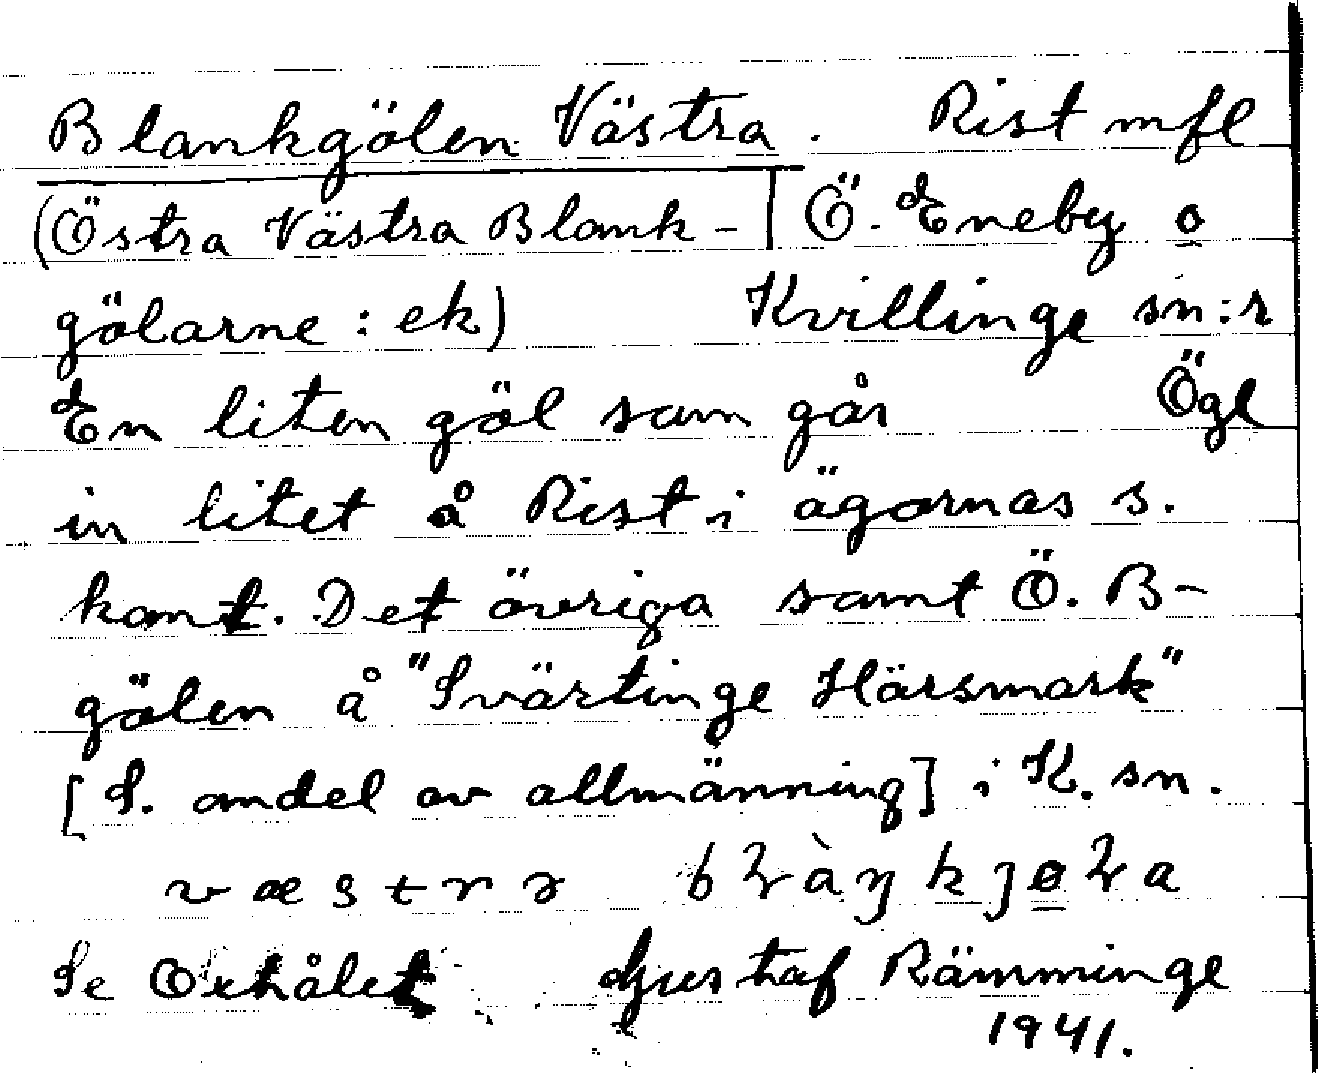 Blankgölen Västra. Rist mfl
(Östra Västra Blank- | Ö. Eneby o
gölarne : ek) Kvillinge sn:r
En liten göl som går Ögl
in litet å Rist i ägornas s.
kant. Det övriga samt Ö. B-
gölen å "Svärtinge Härsmark"
[S. andel av allmänning] i K. sn.
Se Oxhålet Gustaf Rämminge
1941.